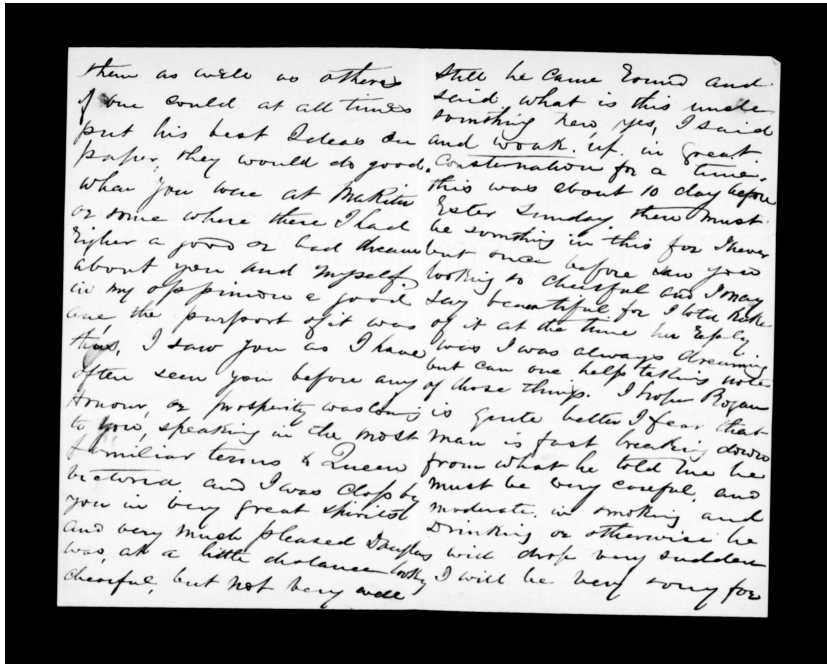 them as well as others
if one could at all times
put his best Ideas on
paper, they would do good.
when you were at Maketu
or some where there I had
Eigher a good or bad dream
about you and myself.
in my oppinion a good
one, the purport of it was
this, I saw you as I have
often seen you before any
Honour, or prosperity was coming
to you, speaking in the most
familiar terms to Queen
Victoria and I was closs by
you in very great spirits
and very much pleased Douglas
was, at a little distance looking
chearful, but not very well
still he came round and
said, what is this uncle
somthing new, yes, I said
and woak. up. in great
Consternation for a time,
this was about 10 day before
Ester Sunday there must
be somthing in this for I never
but once before saw you
looking so chearful and I may
say beautiful, for I told
of it at the time her Reply
was I was always dreaming
but can one help taking note
of those things. I hope Rogan
is quite better I fear that
man is fast breaking down
from what he told me he
must be very careful, and
moderate. in smoking and
Drinking or otherwise he
will drop very sudden
I will be very sorry for